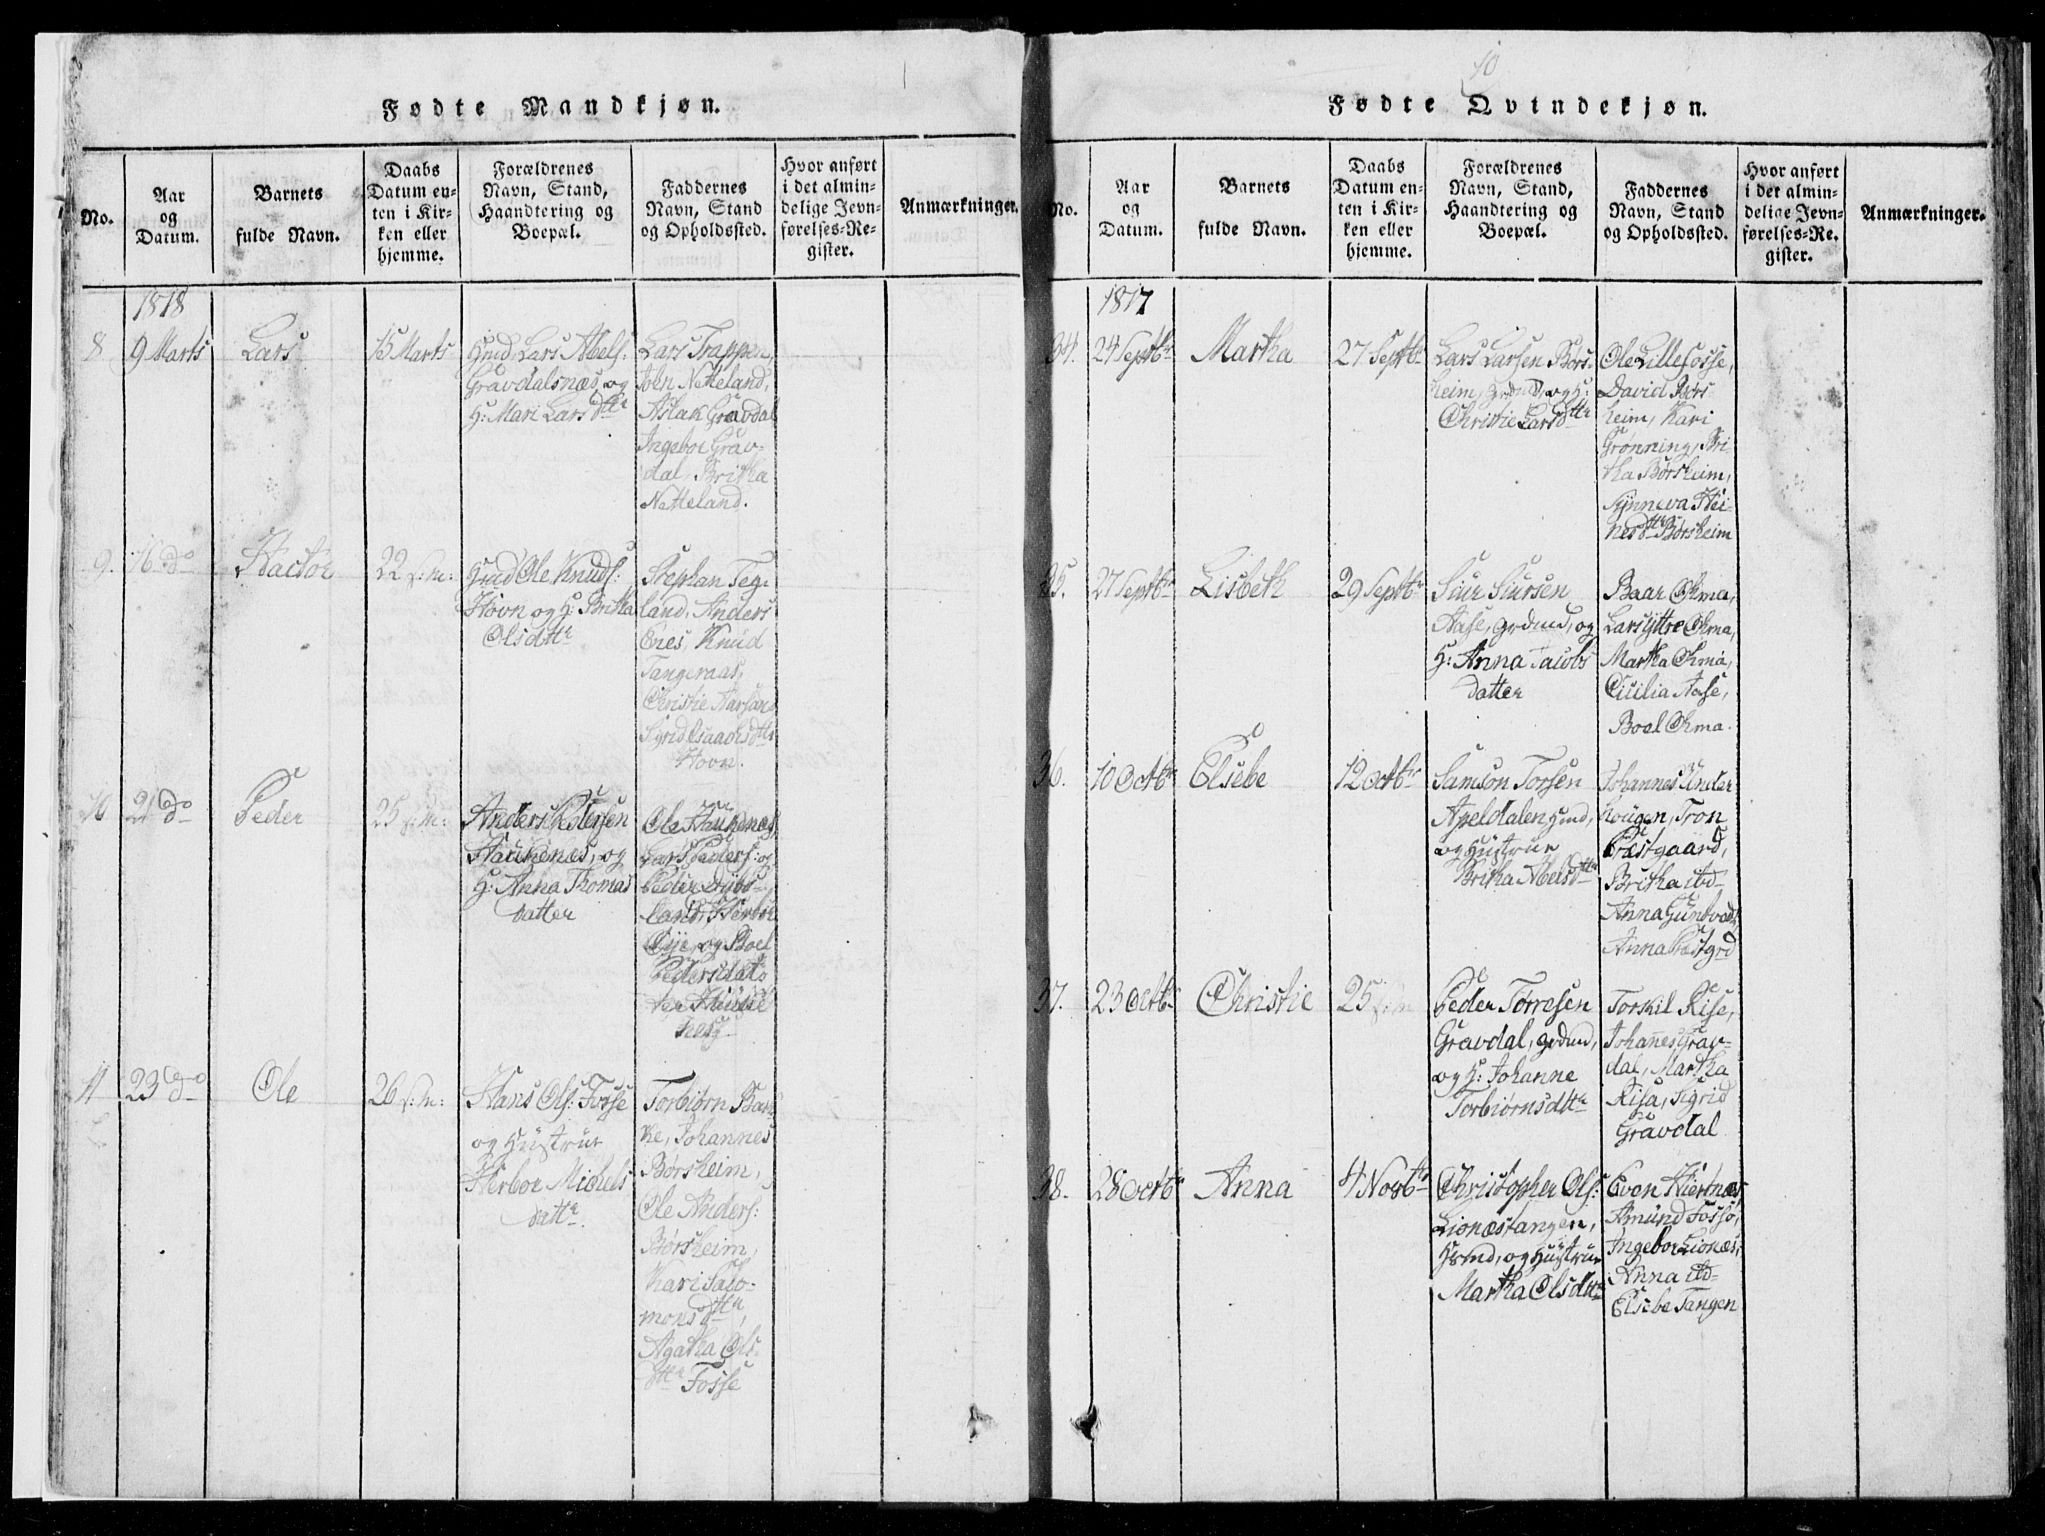 Fødte Mandkjøn.
No.
Aar
og
Datum.
Barnets
fulde Navn.
Daabs
Datum en-
ten i Kir-
ken eller
hjemme.
Forældrenes
Navn, Stand,
Haandtering og
Boepæl.
Faddernes
Navn, Stand
og Opholdssted.
Hvor anført
i det almin-
delige Jevn-
førelses-Re-
gister.
Anmærkninger.
1818
8
9 Marts
Lars
15 Marts
Hmd. Lars Abels:
Gravdalsnæs, og
H: Mari Larsdttr
Lars Trappen,
John Netteland,
Aslak Gravdal
Ingebor Grav-
dal, Britha
Netteland.
9.
16 do
Hactor
22 s:m:
Ole Knuds:
Hovn og H: Britha
Olsdttr
Stephan Teg-
land, Anders
Enes, Knud
Tangeraas,
Christie
Sigrid Isaachsdttr
Hovn.
10
21 do
Peder
25 s:m:
Anders Pedersen
Haukenæs, og
H: Anna Thomas
datter
Ole Haukenæs
Lars Peders: og
Peder
land, Herbor
Øye, og Boel
Pedersdat-
ter
11
23 do
Ole
26 s:m:
Hans Ols: Fosse
og Hustrue
Herbor Michels
dattr.
Torbiørn Bak-
ke, Johannes
Børsheim,
Ole Anders:
Børsheim,
Kari Salo-
monsdttr,
Agatha Ols-
dttr Fosse
10
Fødte Qvindekjøn.
No.
Aar
og
Datum.
Barnets
fulde Navn.
Daabs
Datum en-
ten i Kir-
ken eller
hjemme.
Forældrenes
Navn, Stand,
Haandtering og
Boepæl.
Faddernes
Navn, Stand
og Opholdssted.
Hvor anført
i det almin-
delige Jevn-
førelses-Re-
gister.
Anmærkninger.
1817
34.
24 Septbr
Martha
27 Septbr
Lars Larsen Børs-
heim, grdmd, og H:
Christie Larsdttr
Ole Lille Fosse,
David Børs-
heim, Kari
Grønning, Bri
tha Børsheim,
Synneva Hei-
nesdttr Børsheim
35.
27 Septbr
Lisbeth
29 Septbr
Siur Siursen
Aase, grdmd, og
H: Anna Jacobs
datter
Baar Ohma,
Lars yttre Ohma,
Martha Ohma,
Cicilia Aase,
Boel Ohma.
36.
10 Octbr
Elsebe
12 Octbr
Samson Torsen
Apeldalen Hmd,
og Hustrue
Britha Abelsdttr
Johannes Under
hougen, Tron
Præstgaard,
Britha ibd-
Anna Gundvads
Anna Præstgrd
37.
23 Octbr
Christie
25 s:m
Peder Torresen
Gravdal, grdmd,
og H: Johanne
Torbiørnsdttr
Torkil Rise,
Johannes Grav-
dal, Martha
Risa, Sigrid
Gravdal
38.
28 Octbr
Anna
4 Novbr
Christopher Ols:
Lionæstangen,
Hsmd, og Hustrue
Martha Olsdttr
Even Hiertnæs,
Amund Fosse,
Ingebor Lionæs,
Anna ibd-
Elsebe Tangen